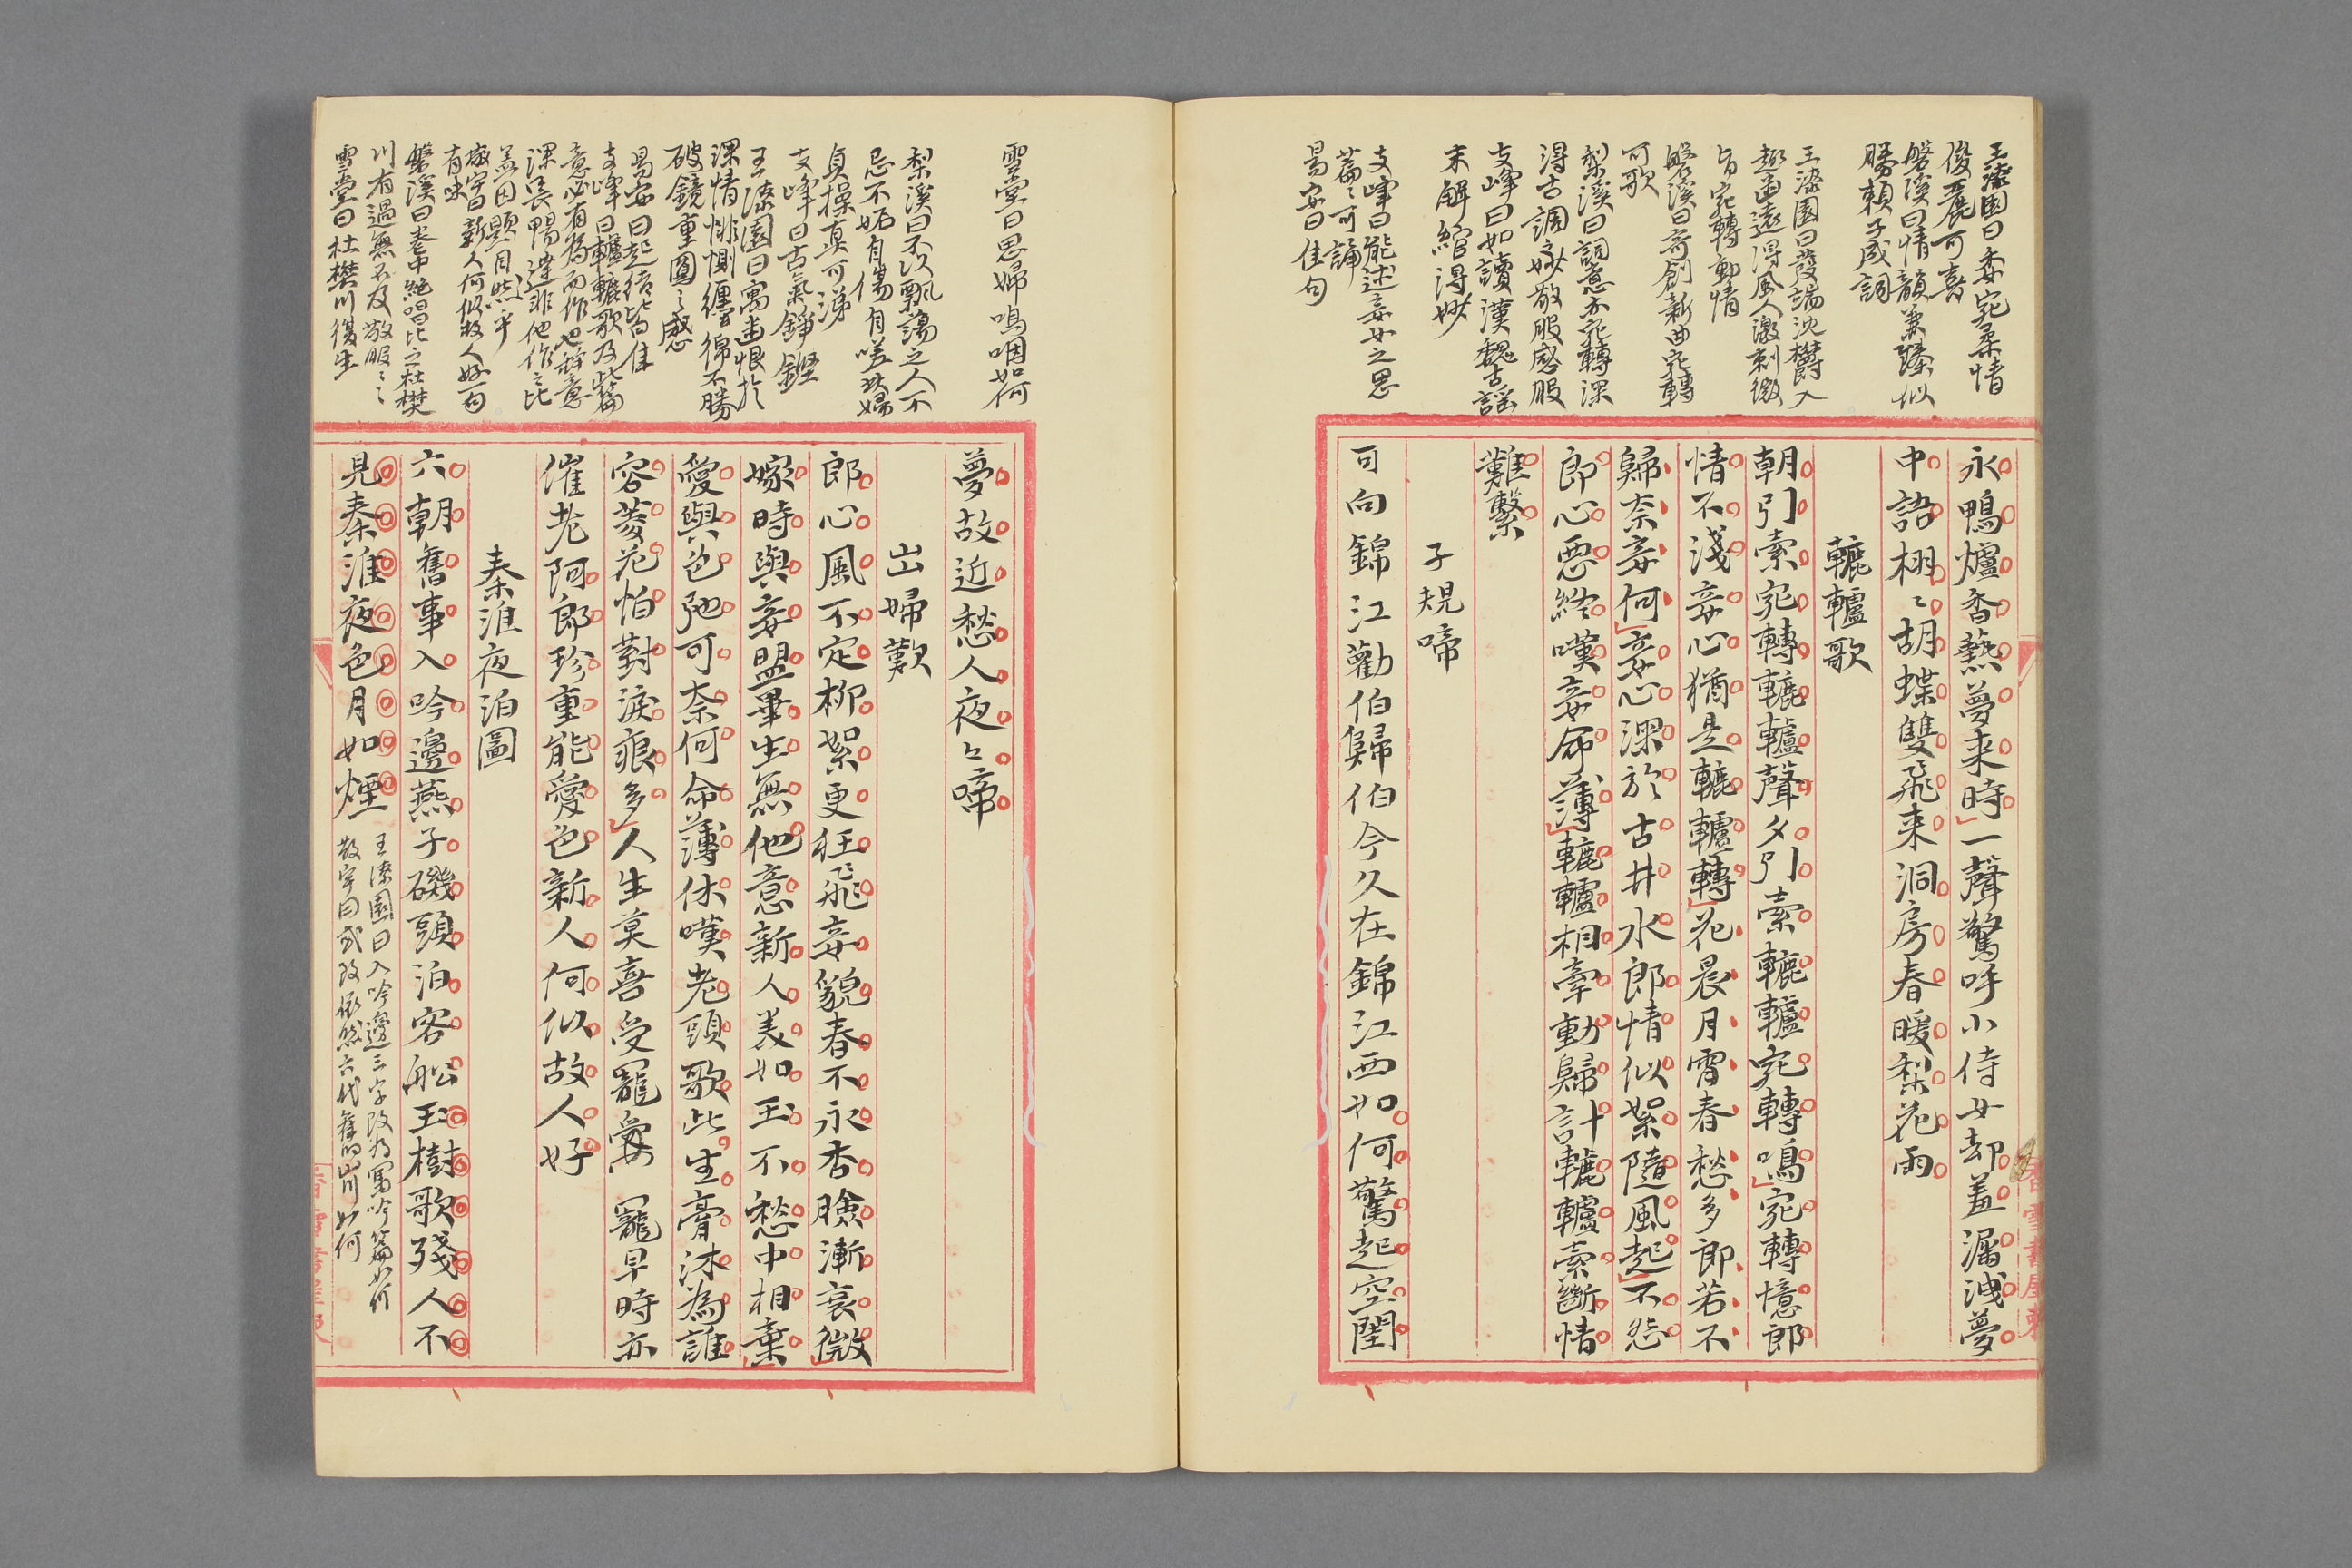 王漆園曰委宛柔情
俊麗可喜
磐溪曰情韻兼臻似
勝賴子成詞
王漆園曰發端沈欝入
趣幽遠得風人激刺微
旨宛轉動情
磐溪曰奇創新曲宛轉
可歌
梨溪曰調意亦宛轉深
得古調之妙敬服感服
支峰曰如讀漢魏古謡
末解綰得妙
支峰曰能述妾女之思
篇〻可誦
易安曰佳句
永鴨爐香爇夢来時一聲驚呼小侍女却羞漏洩夢
中語栩〻胡蝶雙飛来洞房春暖梨花雨
轆轤歌
朝引索宛轉轆轤聲夕引索轆轤宛轉鳴宛轉憶郎
情不淺妾心猶是轆轤轉花晨月宵春愁多郎若不
歸奈妾何妾心深於古井水郎情似絮隨風起不怨
郎心惡終嘆妾命薄轆轤相牽動歸計轆轤索斷情
難繫
子規啼
可向錦江勸伯歸伯今久在錦江西如何驚起空閨
雪堂曰思婦鳴咽如何
梨溪曰不以飄蕩之人不
忌不妬自傷自嗟此婦
貞操真可涕
支峰曰古氣錚鏗
王漆園曰寓幽恨於
深情悱惻纏綿不勝
破鏡重圓之感
易安曰起結皆佳
支峰曰轆轤歌及此篇
意必有為而作也辭意
深長暢達非他作之比
蓋因題目然乎
敬宇曰新人何似故人好句
有味
磐溪曰卷中絶唱比之杜樊
川有過無不及敬服〻〻
雪堂曰杜樊川復生
夢故近愁人夜〻啼
出婦歎
郎心風不定柳絮更狂飛妾貌春不永杏臉漸衰微
嫁時與妾盟畢生無他意新人美如玉不愁中相棄
愛與色弛可奈何命薄休嘆老頭歌此生膏沐為誰
容菱花怕對淚痕多人生莫喜受寵愛寵早時亦
催老阿郎珍重能愛色新人何似故人好
秦淮夜泊圖
六朝舊事入吟邊燕子磯頭泊客舩玉樹歌殘人不
見秦淮夜色月如煙
王漆園曰入吟邊三字改為寓吟篇如何
敬宇曰或改依然六代舊山川如何